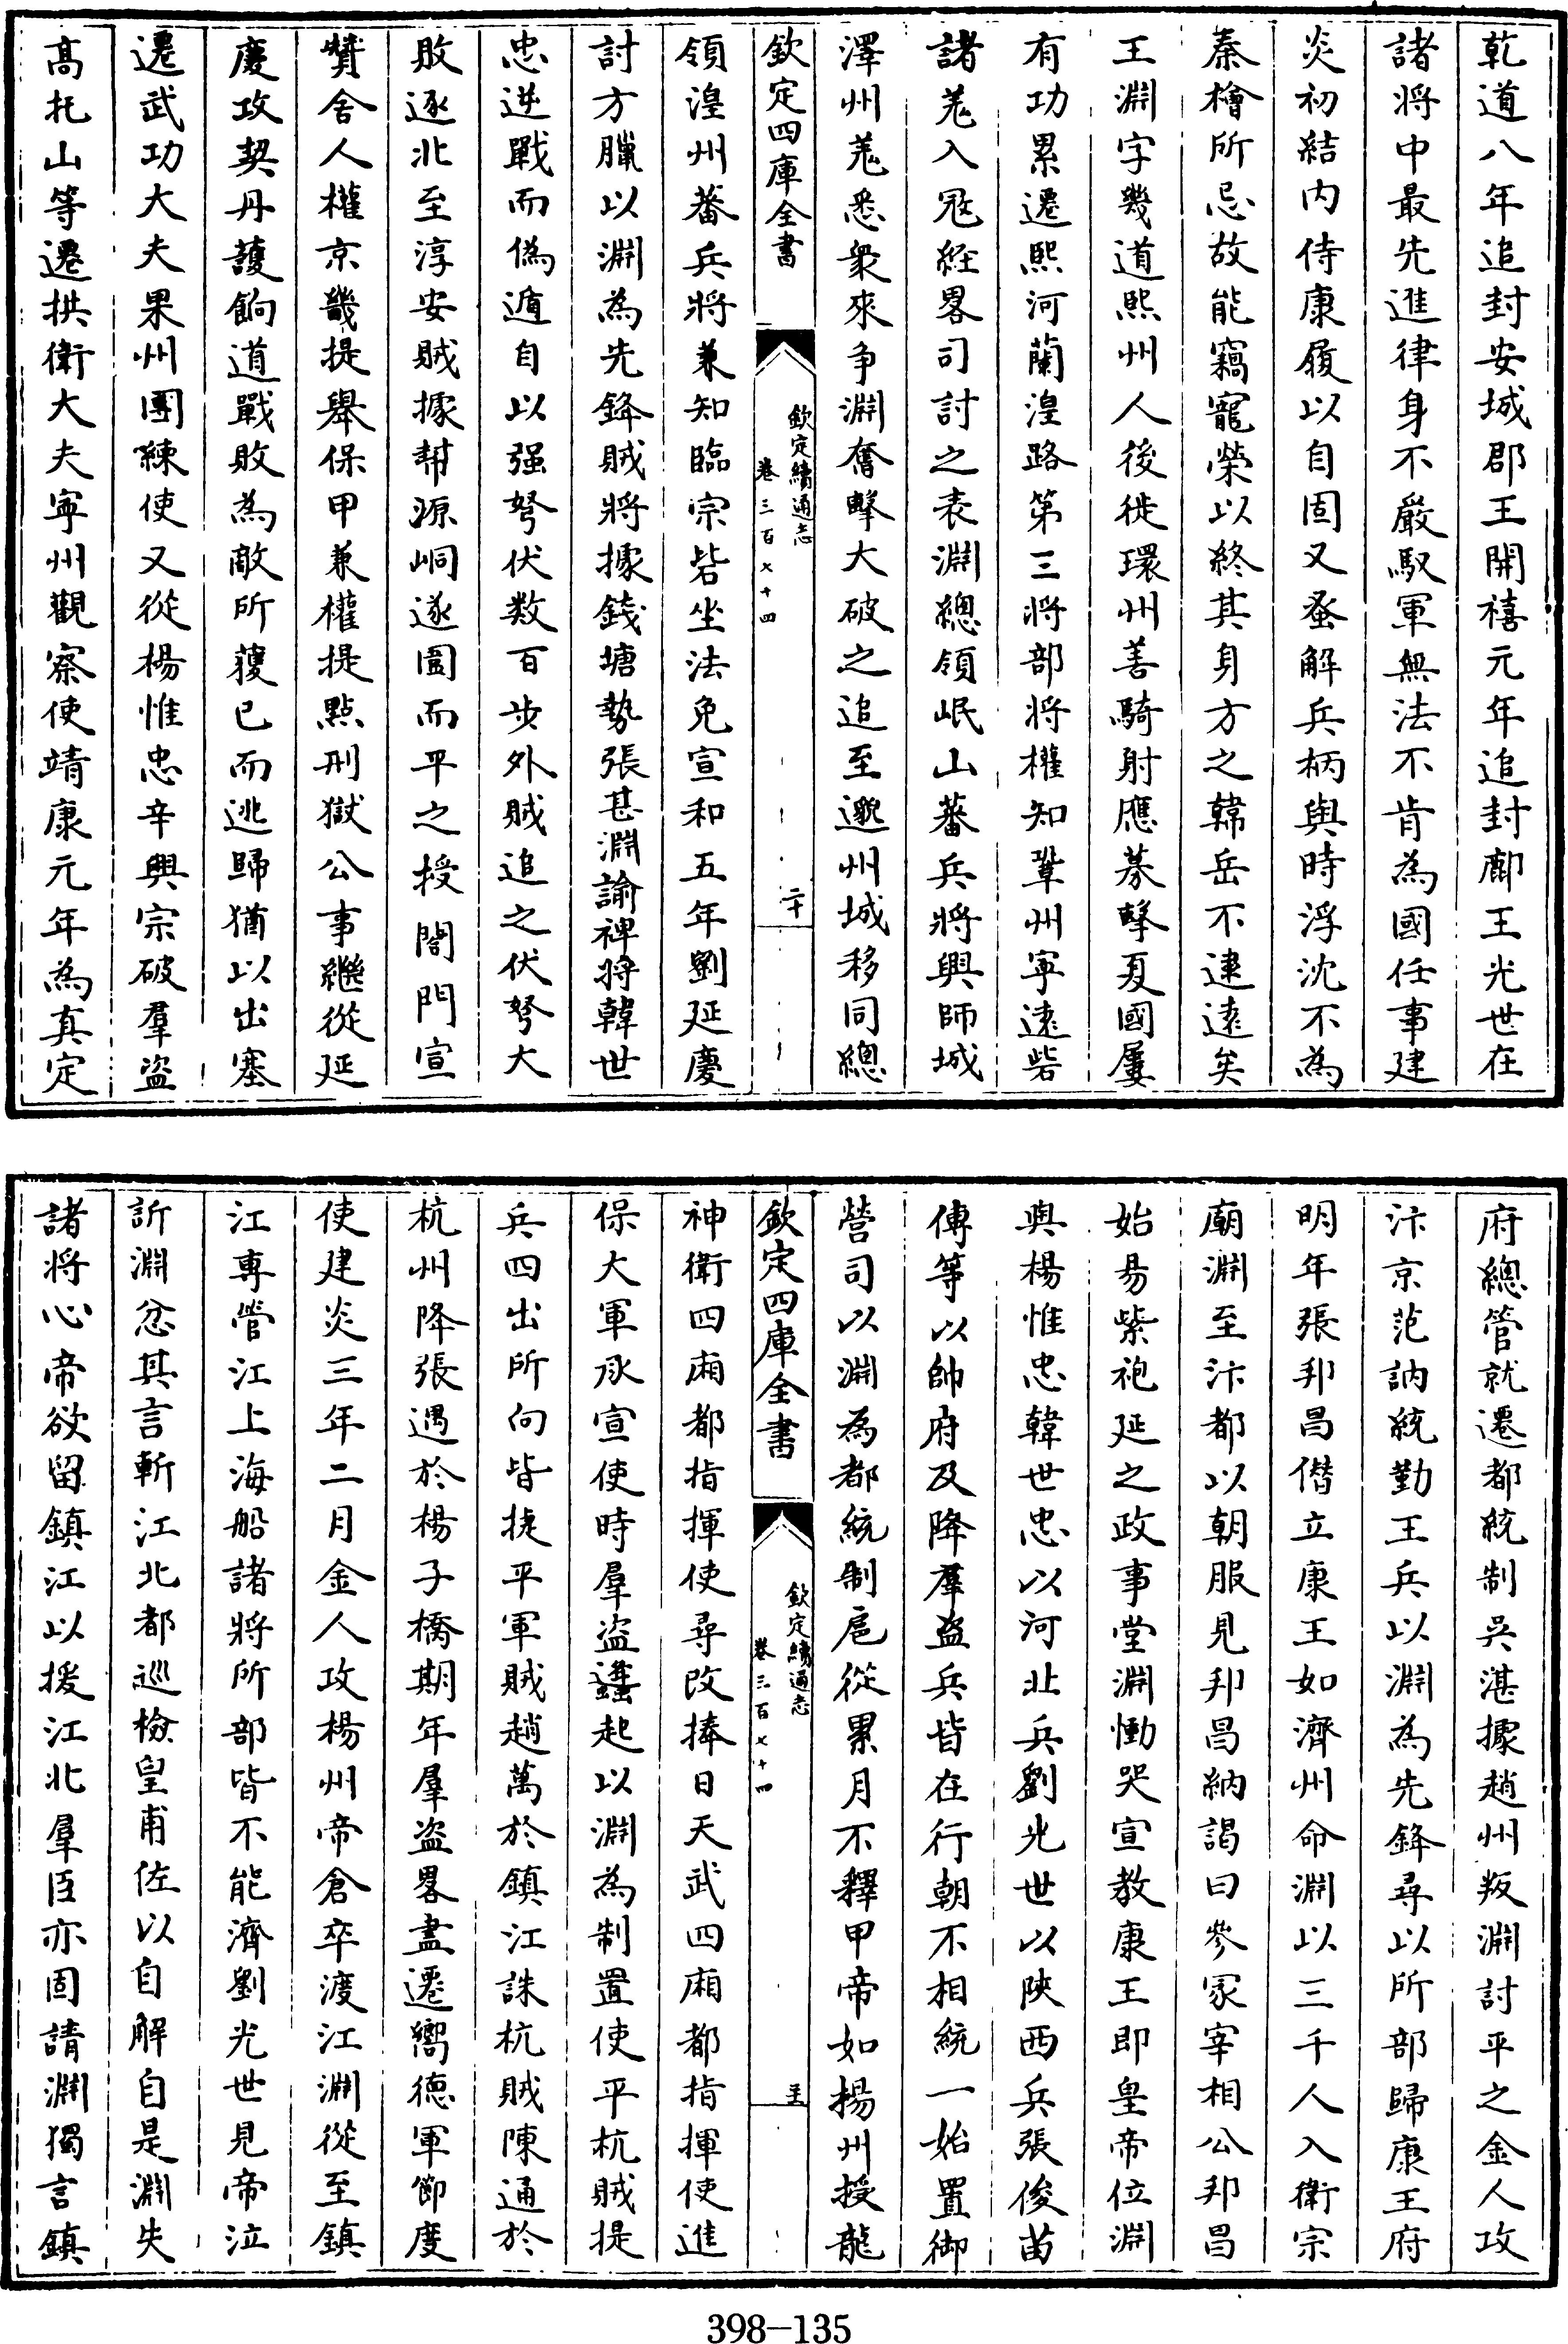 乾道八年追封安城郡王開禧元年追封鄜王光世在
諸將中最先進律身不嚴馭軍無法不肯為國任事建
炎初結内侍康履以自固又蚤解兵柄與時浮沈不為
秦檜所忌故能竊寵榮以終其身方之韓岳不逮遠矣
王淵字幾道熙州人後徙環州善騎射應募擊夏國屢
有功累遷熙河蘭湟路第三將部將權知鞏州寧遠砦
諸羌入冦經畧司討之表淵總領岷山蕃兵將興師城
澤州羌悉衆來争淵奮擊大破之追至邈州城移同總
欽定四庫全書
欽定續通志
卷三百七十四
二十
領湟州蕃兵將兼知臨宗砦坐法免宣和五年劉延慶
討方臘以淵為先鋒賊將據錢塘勢張甚淵諭裨將韓世
忠逆戰而偽遁自以强弩伏数百步外賊追之伏弩大
敗逐北至淳安賊據幇源峒遂圍而平之授閤門宣
贊舍人權京畿提舉保甲兼權提點刑獄公事繼從延
慶攻契丹䕶餉道戰敗為敵所獲已而逃歸猶以出塞
遷武功大夫果州團練使又從楊惟忠辛興宗破羣盜
髙托山等遷拱衛大夫寧州觀察使靖康元年為真定
府總管就遷都統制吳湛據趙州叛淵討平之金人攻
汴京范訥統勤王兵以淵為先鋒尋以所部歸康王府
明年張邦昌僭立康王如濟州命淵以三千人入衛宗
廟淵至汴都以朝服見邦昌納謁曰參冢宰相公邦昌
始易紫袍延之政事堂淵慟哭宣教康王即皇帝位淵
與楊惟忠韓世忠以河北兵劉光世以陝西兵張俊苗
傅等以帥府及降羣盜兵皆在行朝不相統一始置御
營司以淵為都統制扈從累月不釋甲帝如揚州授龍
欽定四庫全書
欽定續通志
卷三百七十四
二十一
神衛四廂都指揮使尋改捧日天武四廂都指揮使進
保大軍承宣使時羣盜蠭起以淵為制置使平杭賊提
兵四出所向皆捷平軍賊趙萬於鎮江誅杭賊陳通於
杭州降張遇於楊子橋期年羣盜畧盡遷嚮德軍節度
使建炎三年二月金人攻楊州帝倉卒渡江淵從至鎮
江專管江上海船諸將所部皆不能濟劉光世見帝泣
訴淵忿其言斬江北都巡檢皇甫佐以自解自是淵失
諸將心帝欲留鎮江以援江北羣臣亦固請淵獨言鎮
398-135